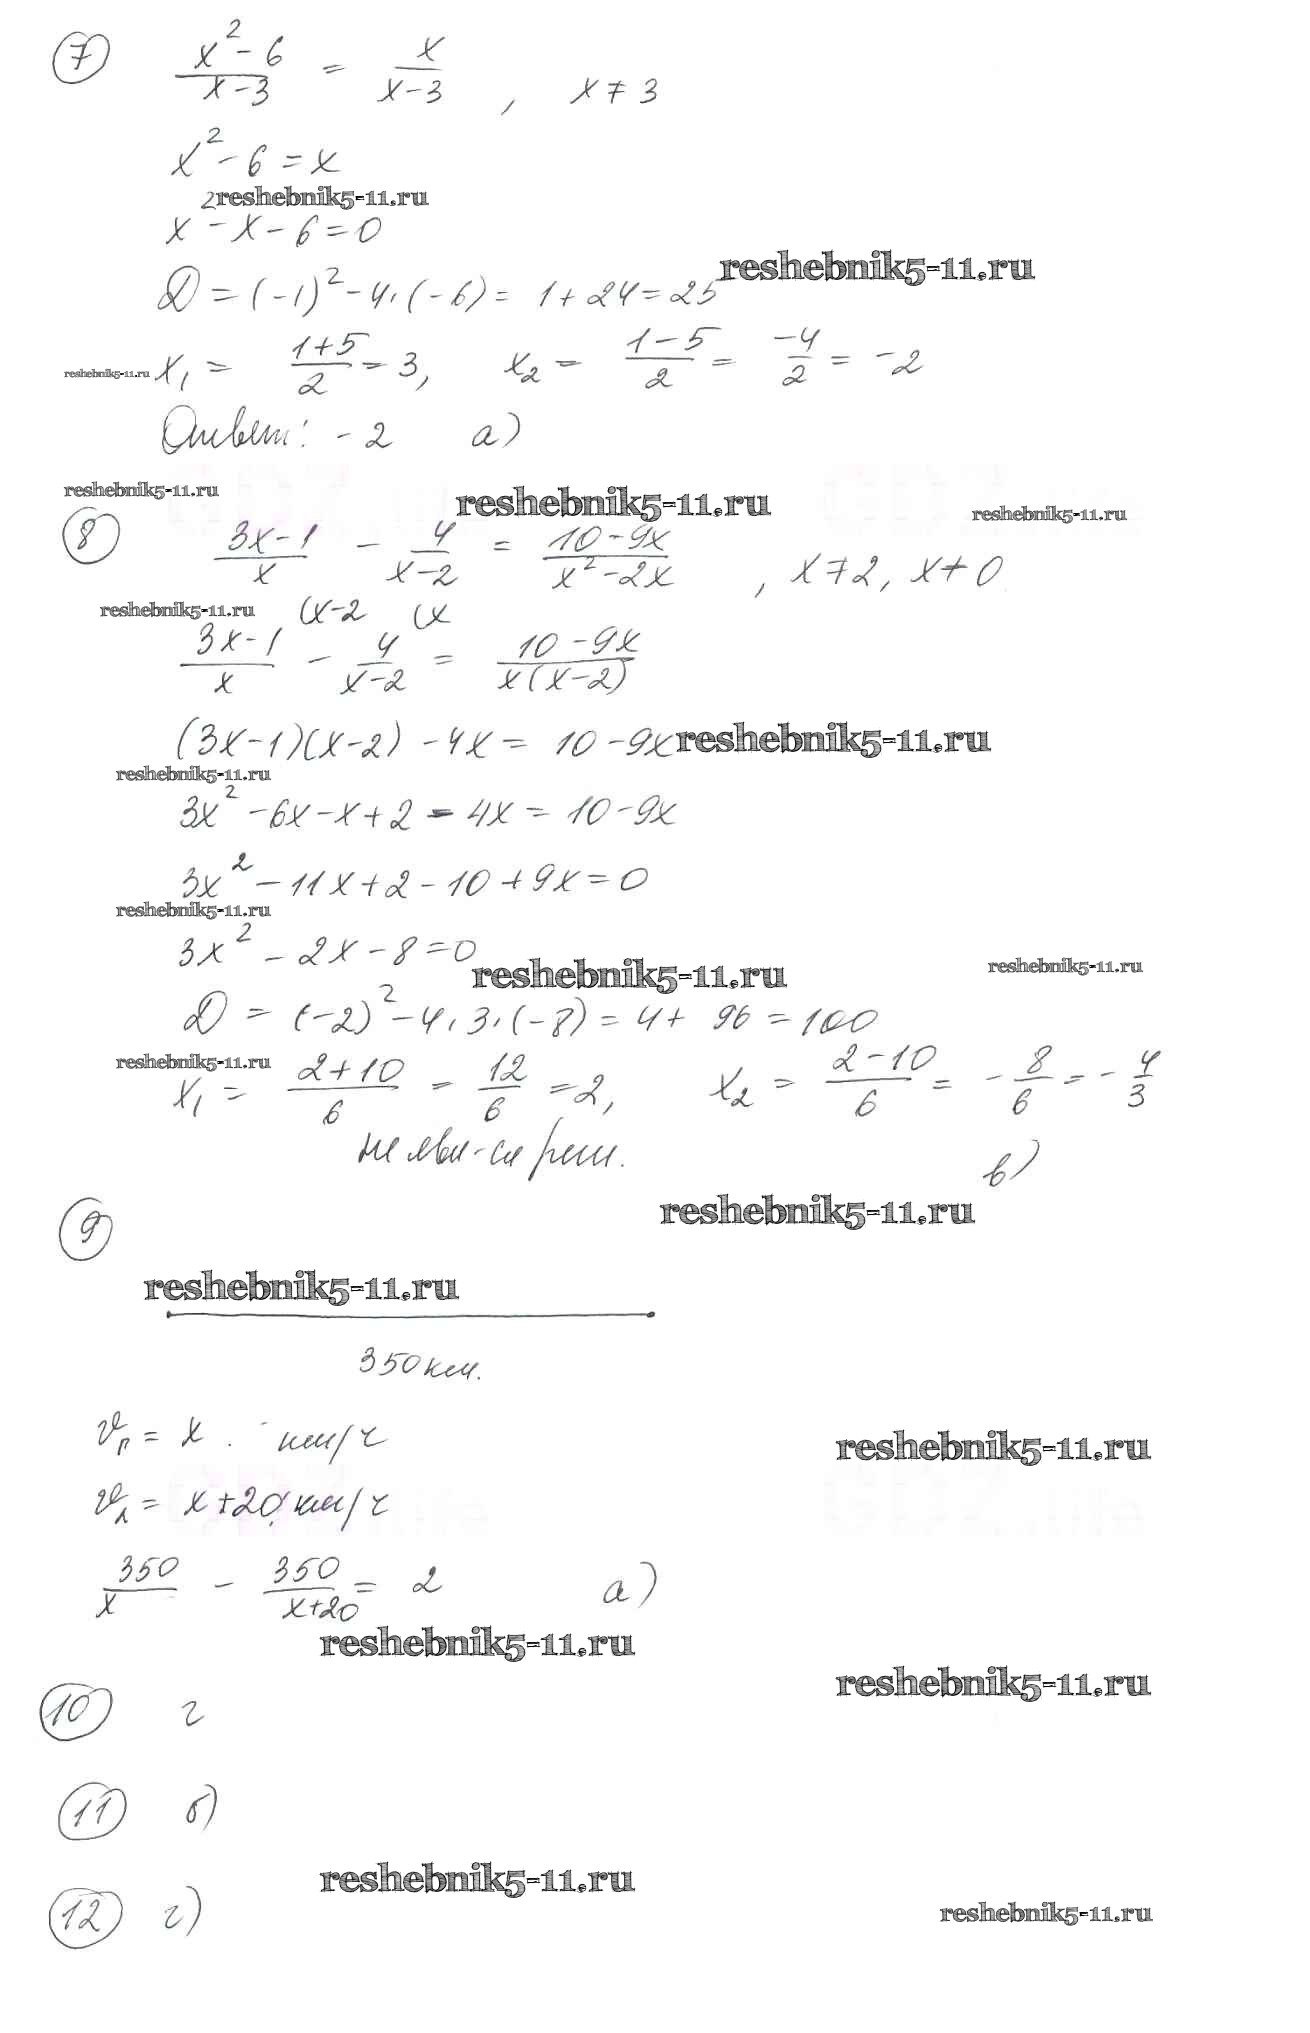 7 x² - 6 / x - 3 = x / x - 3 , x ≠ 3
x² - 6 = x
reshebnik5-11.ru
x² - x - 6 = 0
reshebnik5-11.ru
D = (-1)² - 4·(-6) = 1 + 24 = 25
reshebnik5-11.ru x₁ = 1+5 / 2 = 3, x₂ = 1-5 / 2 = -4 / 2 = -2
Ответ: -2 а)
reshebnik5-11.ru reshebnik5-11.ru reshebnik5-11.ru
8 3x-1 / x - 4 / x-2 = 10-9x / x²-2x , x ≠ 2, x ≠ 0
reshebnik5-11.ru (x-2 (x
3x-1 / x - 4 / x-2 = 10-9x / x(x-2)
(3x-1)(x-2) - 4x = 10-9x reshebnik5-11.ru
reshebnik5-11.ru
3x² - 6x - x + 2 - 4x = 10 - 9x
3x² - 11x + 2 - 10 + 9x = 0
reshebnik5-11.ru
3x² - 2x - 8 = 0
reshebnik5-11.ru reshebnik5-11.ru
D = (-2)² - 4·3·(-8) = 4 + 96 = 100
reshebnik5-11.ru
x₁ = 2+10 / 6 = 12 / 6 = 2, x₂ = 2-10 / 6 = - 8 / 6 = - 4 / 3
не явл-ся реш. в)
reshebnik5-11.ru
9
reshebnik5-11.ru
350 км.
vп = x км/ч
reshebnik5-11.ru
vл = x + 20 км/ч
350 / x - 350 / x+20 = 2 а)
reshebnik5-11.ru
reshebnik5-11.ru
10 г
11 б)
reshebnik5-11.ru
12 г)
reshebnik5-11.ru